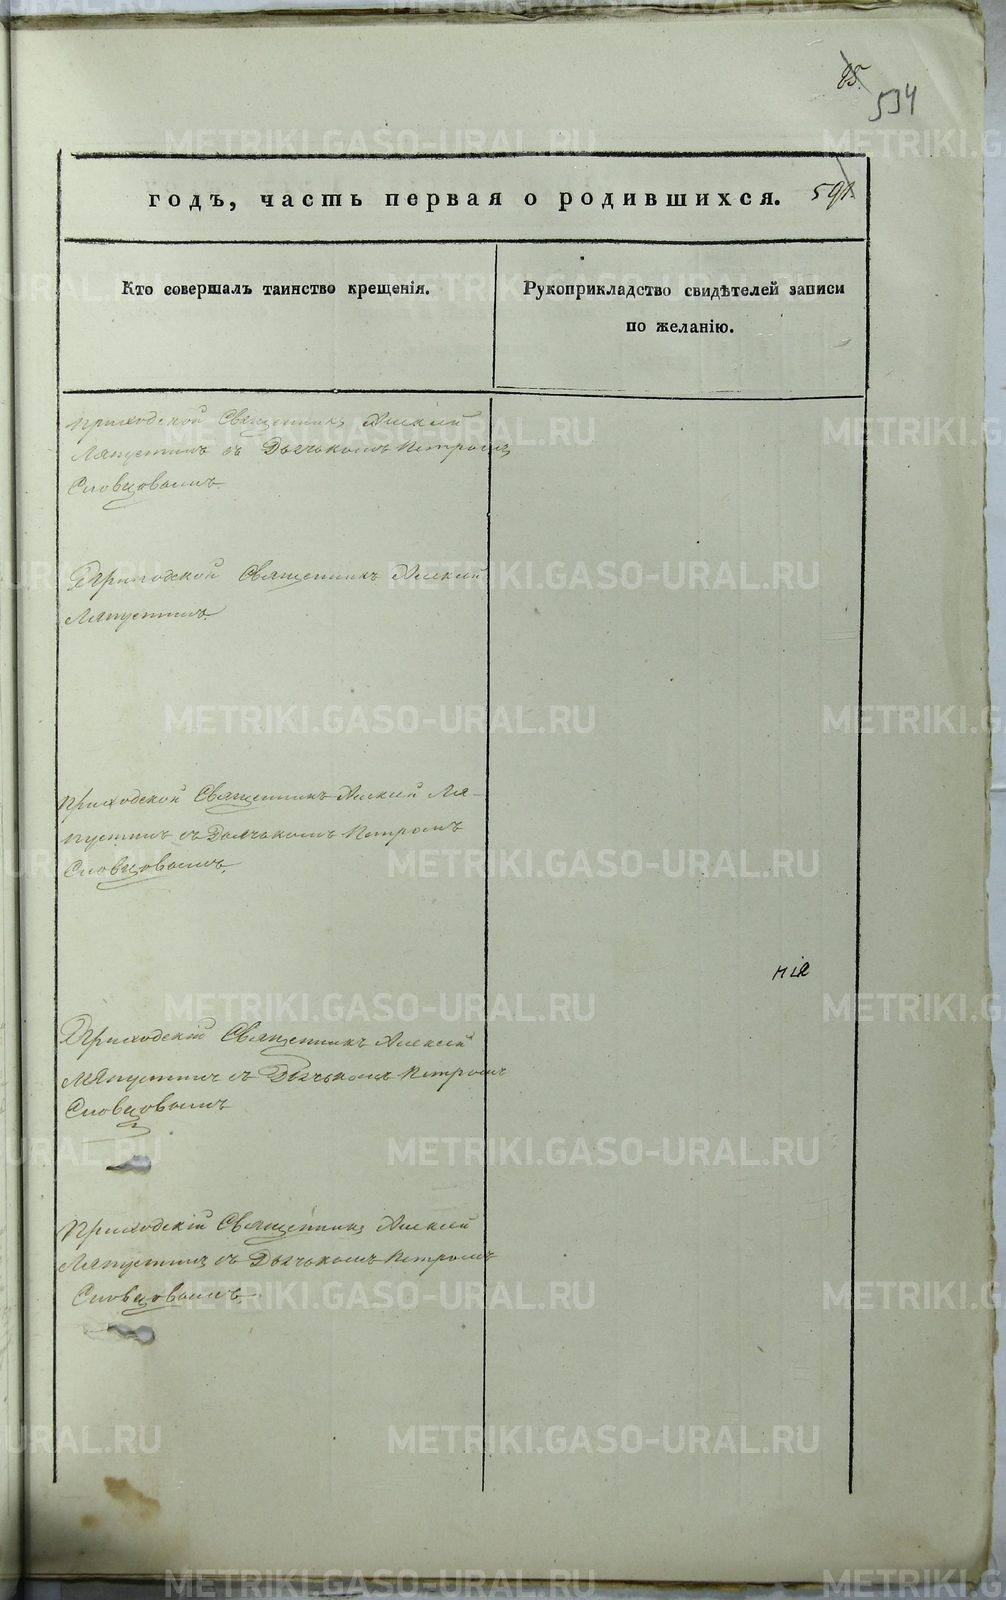 85.
534
годъ, часть первая о родившихся. 591.
Кто совершалъ таинство крещенія.
Рукоприкладство свидѣтелей записи
по желанію.
Приходской Священникъ Алексій
Ляпустинъ съ Дьячькомъ Петромъ
Словцовымъ.
Приходской Священникъ Алексій
Ляпустинъ.
Приходской Священникъ Алексій Ля-
пустинъ съ Дьячькомъ Петромъ
Словцовымъ.
нія
Приходскій Священникъ Алексій
Ляпустинъ съ Дьячькомъ Петромъ
Словцовымъ
Приходскій Священникъ Алексій
Ляпустинъ съ Дьячькомъ Петромъ
Словцовымъ.
METRIKI.GASO-URAL.RU